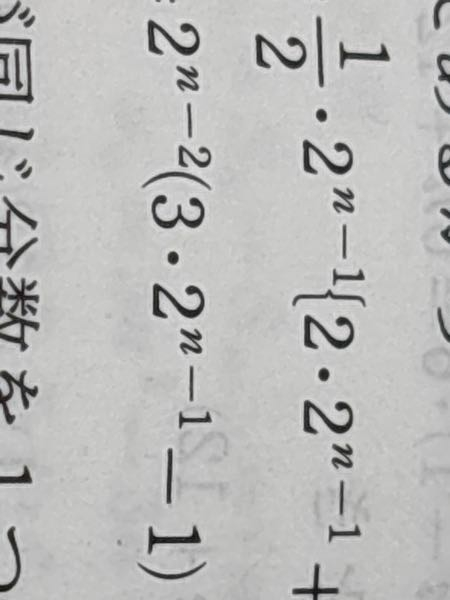 1/2 · 2^{n-1}{2 · 2^{n-1} +
= 2^{n-2}(3 · 2^{n-1} - 1)
が同じ分数を1つ